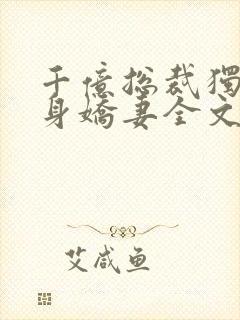 千億总裁獨
身嬌妻全文
艾咸鱼